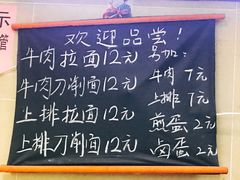 欢迎品尝！
牛肉拉面12元
牛肉刀削面12元
上排拉面12元
上排刀削面12元
另加：
牛肉 7元
上排 7元
煎蛋 2元
卤蛋 2元
示
管